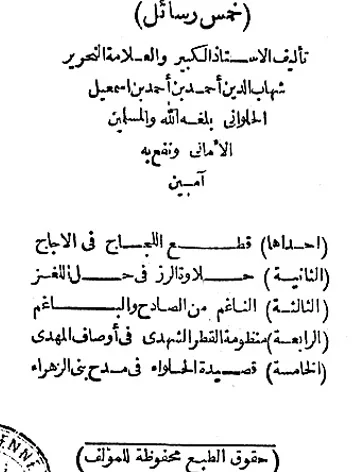 (خمس رسائل)
تأليف الاستاذ الكبير والعلامة النحرير
شهاب الدين أحمد بن أحمد بن اسمعيل
الحلوانى بلغه الله والمسلمين
الأمانى ونفع به
آمين
(احداها) قطع اللجاج فى الاجاج
(الثانية) حلاوة الرز فى حل اللغز
(الثالثة) الناغم من الصادح والباغم
(الرابعة) منظومة القطر الشهدى فى أوصاف المهدى
(الخامسة) قصيدة الحلواء فى مدح بنى الزهراء
(حقوق الطبع محفوظة للمؤلف)
ENNE